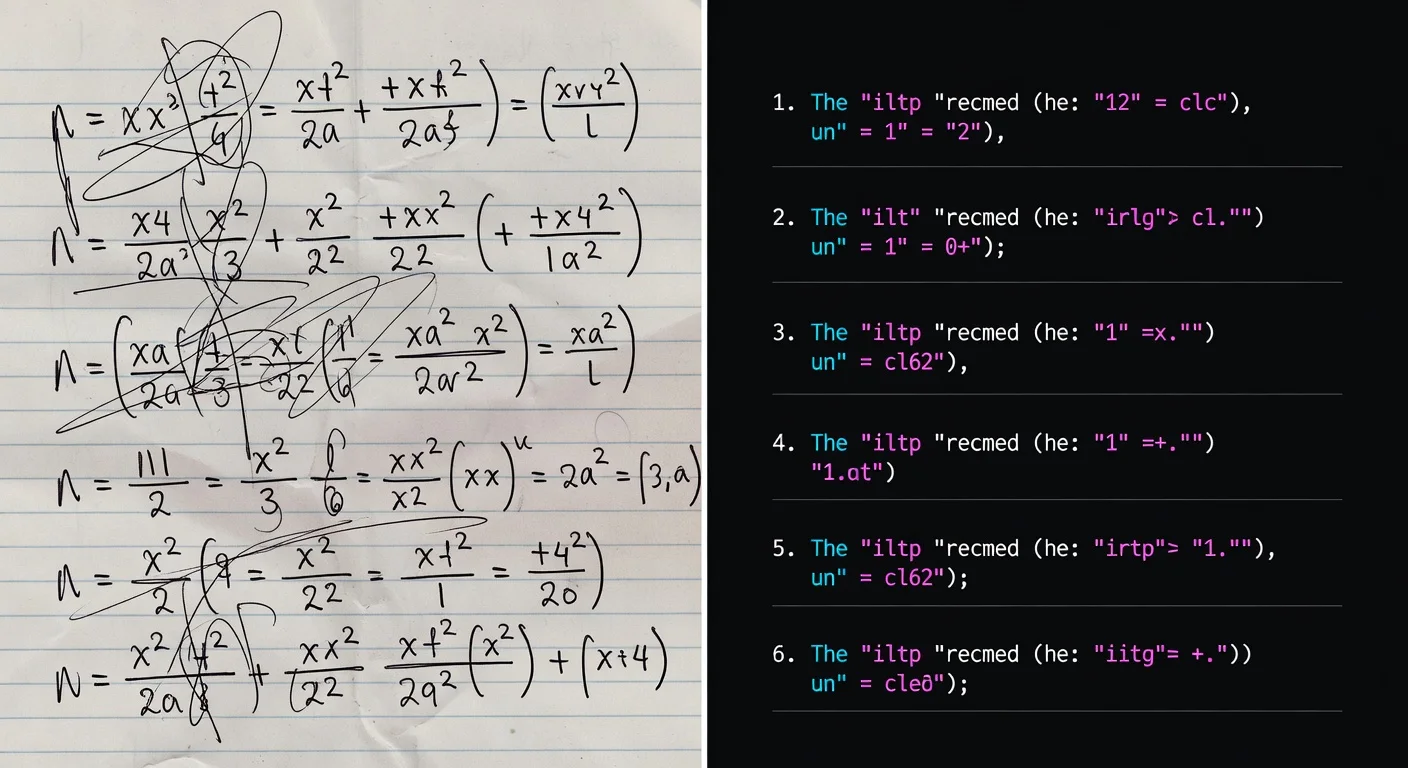 n = (xf²)/(2a) + (+xf²)/(2a) ) = ((xvy²)/l)
n = (x4)/(2a³) (x²)/(3 + (x²)/(2²) (+xx²)/(22) (+ (+x4²)/(1a²))
n = ((xa)/(2a) = (xa² x²)/(2ar²)) = (xa²)/l)
n = 111/2 = (x²)/3 = (xx²)/(x2) (xx) = 2a² = (3,a)
n = (x²)/2 (9 = (x²)/(22) = (xf²)/1 = (+4²)/(20))
n = (x²)/(2a) + (xx²)/(2²) (xf²(x²))/(2a²) ) + (x+4)
1. The "iltp "recmed (he: "12" = clc"),
un" = 1" = "2"),
2. The "ilt" "recmed (he: "irlg"> cl."")
un" = 1" = 0+");
3. The "iltp "recmed (he: "1" =x."")
un" = cl62"),
4. The "iltp "recmed (he: "1" =+."")
"1.at")
5. The "iltp "recmed (he: "irtp"> "1.""),
un" = cl62");
6. The "iltp "recmed (he: "iitg"= +."))
un" = cleð");